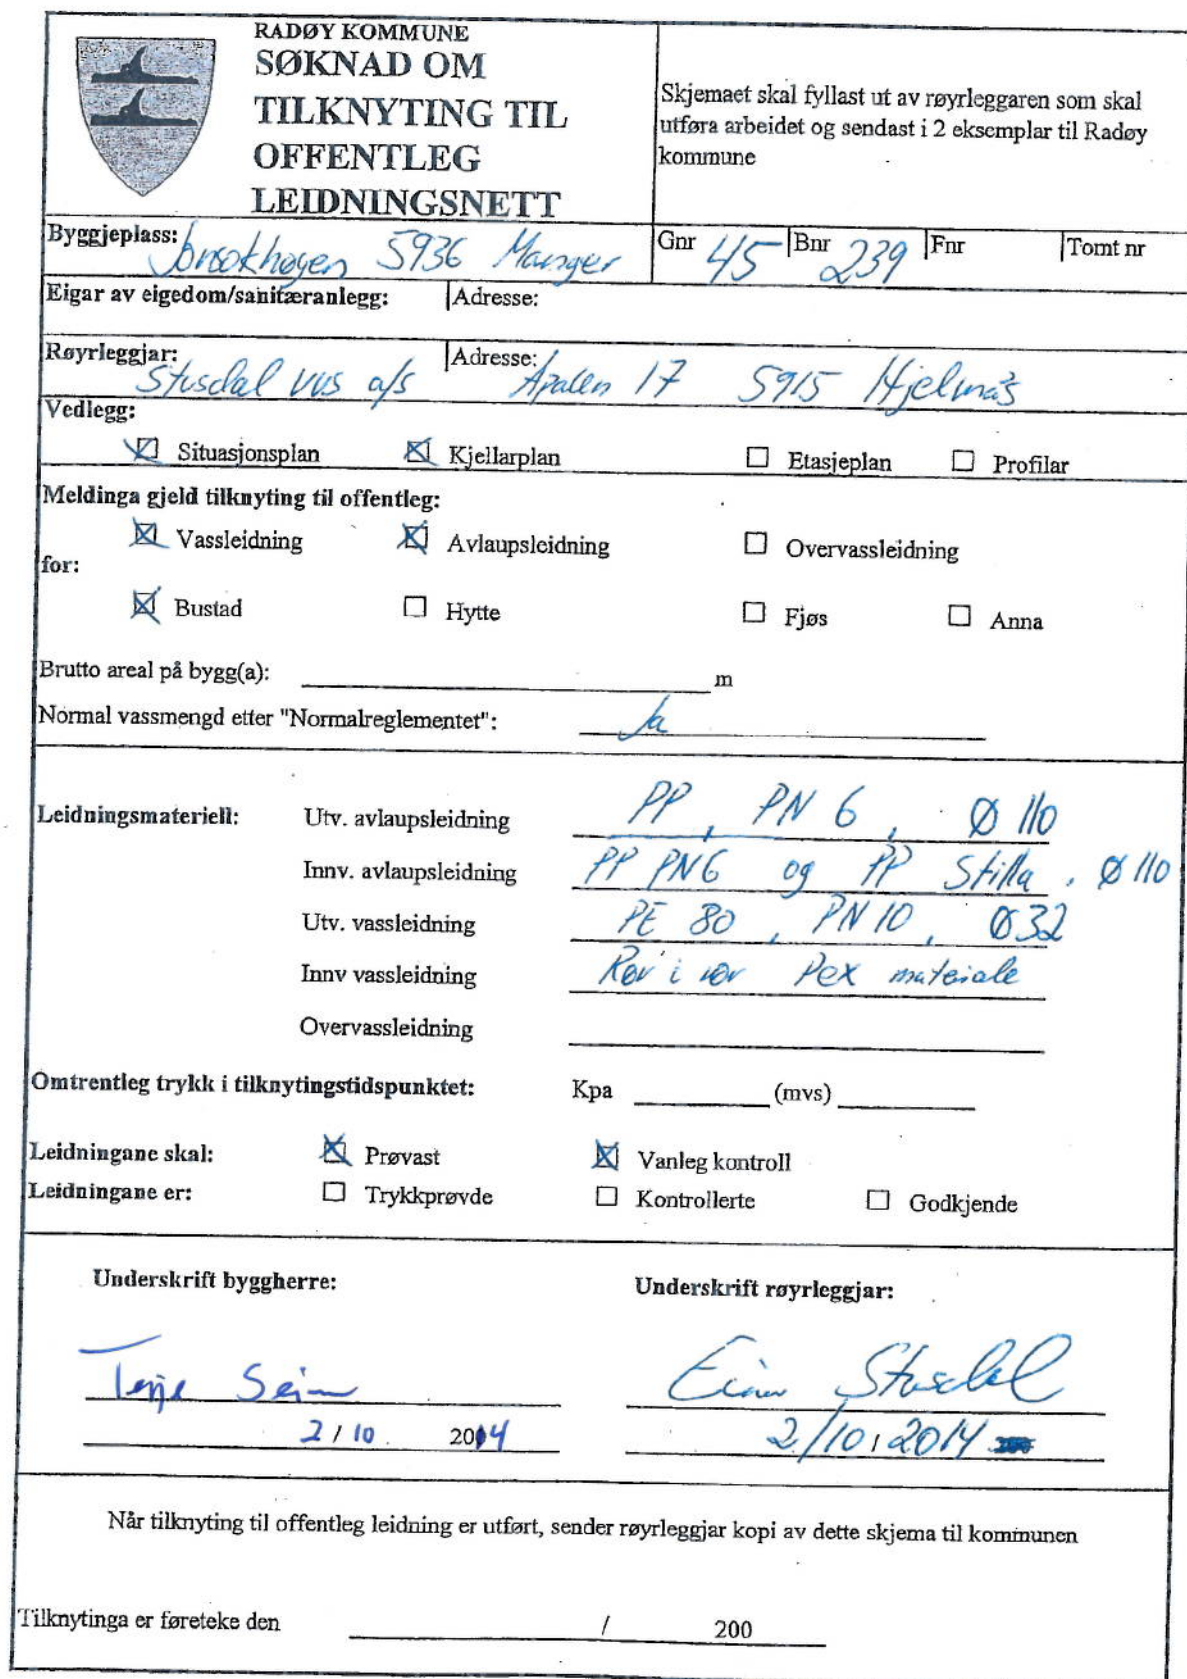 RADØY KOMMUNE
SØKNAD OM
TILKNYTING TIL
OFFENTLEG
LEIDNINGSNETT
Skjemaet skal fyllast ut av røyrleggaren som skal
utføra arbeidet og sendast i 2 eksemplar til Radøy
kommune
Byggjeplass: Jonsokhøgen 5936 Manger Gnr 45 Bnr 239 Fnr Tomt nr
Eigar av eigedom/sanitæranlegg: Adresse:
Røyrleggjar: Stusdal VVS a/s Adresse: Apalen 17 5915 Hjelmås
Vedlegg:
Situasjonsplan Kjellarplan Etasjeplan Profilar
Meldinga gjeld tilknyting til offentleg:
Vassleidning Avlaupsleidning Overvassleidning
for:
Bustad Hytte Fjøs Anna
Brutto areal på bygg(a): m
Normal vassmengd etter "Normalreglementet": Ja
Leidningsmateriell: Utv. avlaupsleidning PP, PN 6, Ø 110
Innv. avlaupsleidning PP PN6 og PP Stilla, Ø 110
Utv. vassleidning PE 80, PN 10, Ø32
Innv vassleidning Rør i rør Pex materiale
Overvassleidning
Omtrentleg trykk i tilknytingstidspunktet: Kpa (mvs)
Leidningane skal: Prøvast Vanleg kontroll
Leidningane er: Trykkprøvde Kontrollerte Godkjende
Underskrift byggherre: Underskrift røyrleggjar:
Terje Seim Einar Stusdal
2/10. 2014 2/10, 2014
Når tilknyting til offentleg leidning er utført, sender røyrleggjar kopi av dette skjema til kommunen
Tilknytinga er føreteke den / 200